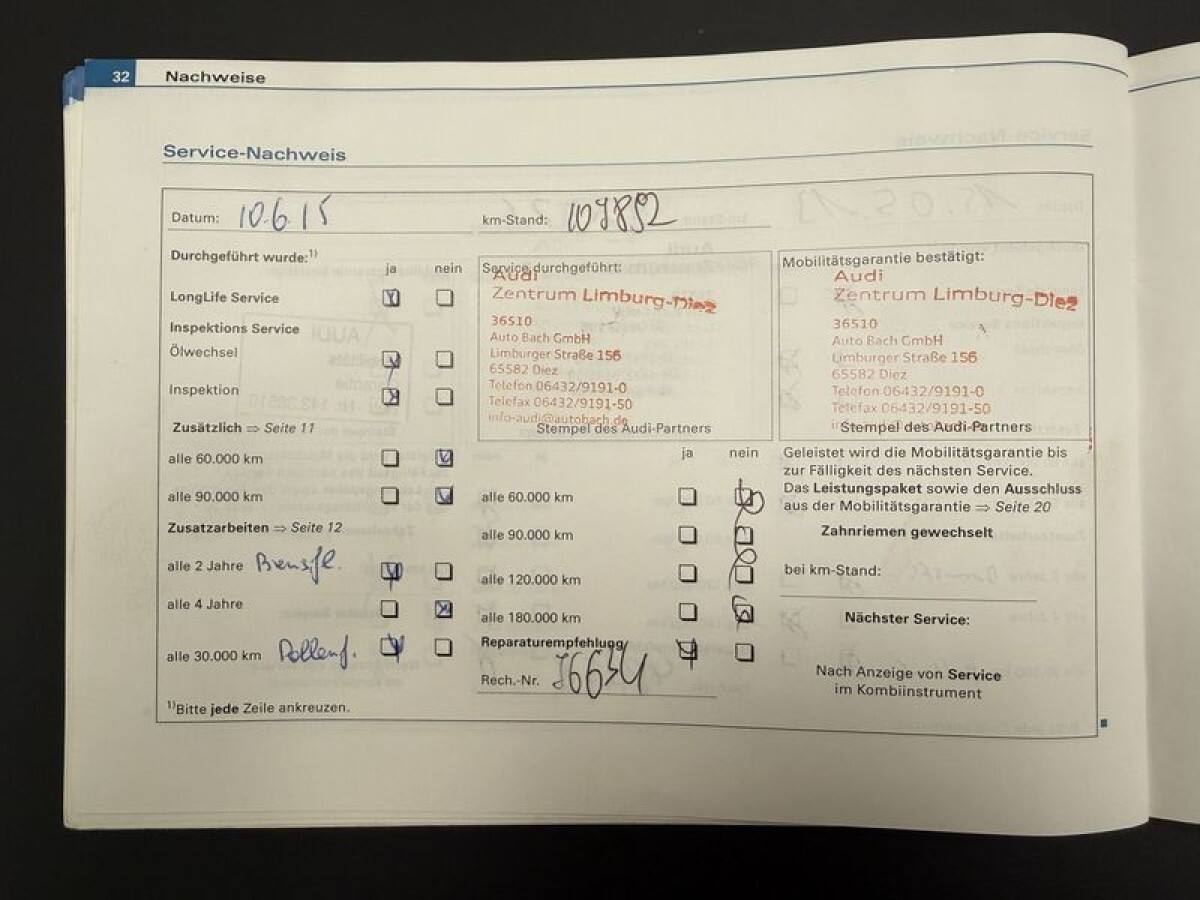 32 Nachweise
Service-Nachweis
Datum: 10.6.15 km-Stand: 109852
Durchgeführt wurde:1)
ja nein
LongLife Service
Inspektions Service
Ölwechsel
Inspektion
Zusätzlich ⇒ Seite 11
alle 60.000 km
alle 90.000 km
Zusatzarbeiten ⇒ Seite 12
alle 2 Jahre Bremsfl.
alle 4 Jahre
alle 30.000 km Pollenf.
1)Bitte jede Zeile ankreuzen.
Service durchgeführt:
Audi
Zentrum Limburg-Diez
36510
Auto Bach GmbH
Limburger Straße 156
65582 Diez
Telefon 06432/9191-0
Telefax 06432/9191-50
info-audi@autobach.de
Stempel des Audi-Partners
ja nein
alle 60.000 km
alle 90.000 km
alle 120.000 km
alle 180.000 km
Reparaturempfehlugg
Rech.-Nr. 76634
Mobilitätsgarantie bestätigt:
Audi
Zentrum Limburg-Diez
36510
Auto Bach GmbH
Limburger Straße 156
65582 Diez
Telefon 06432/9191-0
Telefax 06432/9191-50
Stempel des Audi-Partners
Geleistet wird die Mobilitätsgarantie bis
zur Fälligkeit des nächsten Service.
Das Leistungspaket sowie den Ausschluss
aus der Mobilitätsgarantie ⇒ Seite 20
Zahnriemen gewechselt
bei km-Stand:
Nächster Service:
Nach Anzeige von Service
im Kombiinstrument